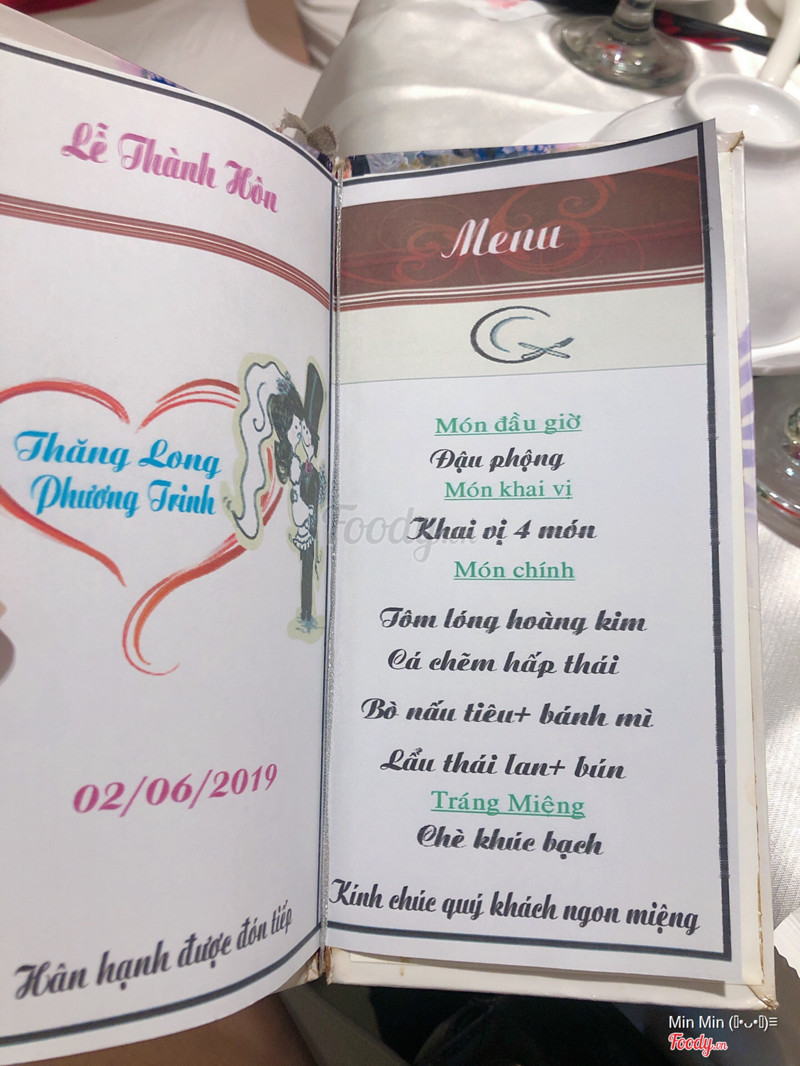 Lễ Thành Hôn
Thăng Long
Phương Trinh
02/06/2019
Hân hạnh được đón tiếp
Menu
Món đầu giờ
Đậu phộng
Món khai vị
Khai vị 4 món
Món chính
Tôm lóng hoàng kim
Cá chẽm hấp thái
Bò nấu tiêu+ bánh mì
Lẩu thái lan+ bún
Tráng Miệng
Chè khúc bạch
Kính chúc quý khách ngon miệng
Foody.vn
Min Min
Foody.vn